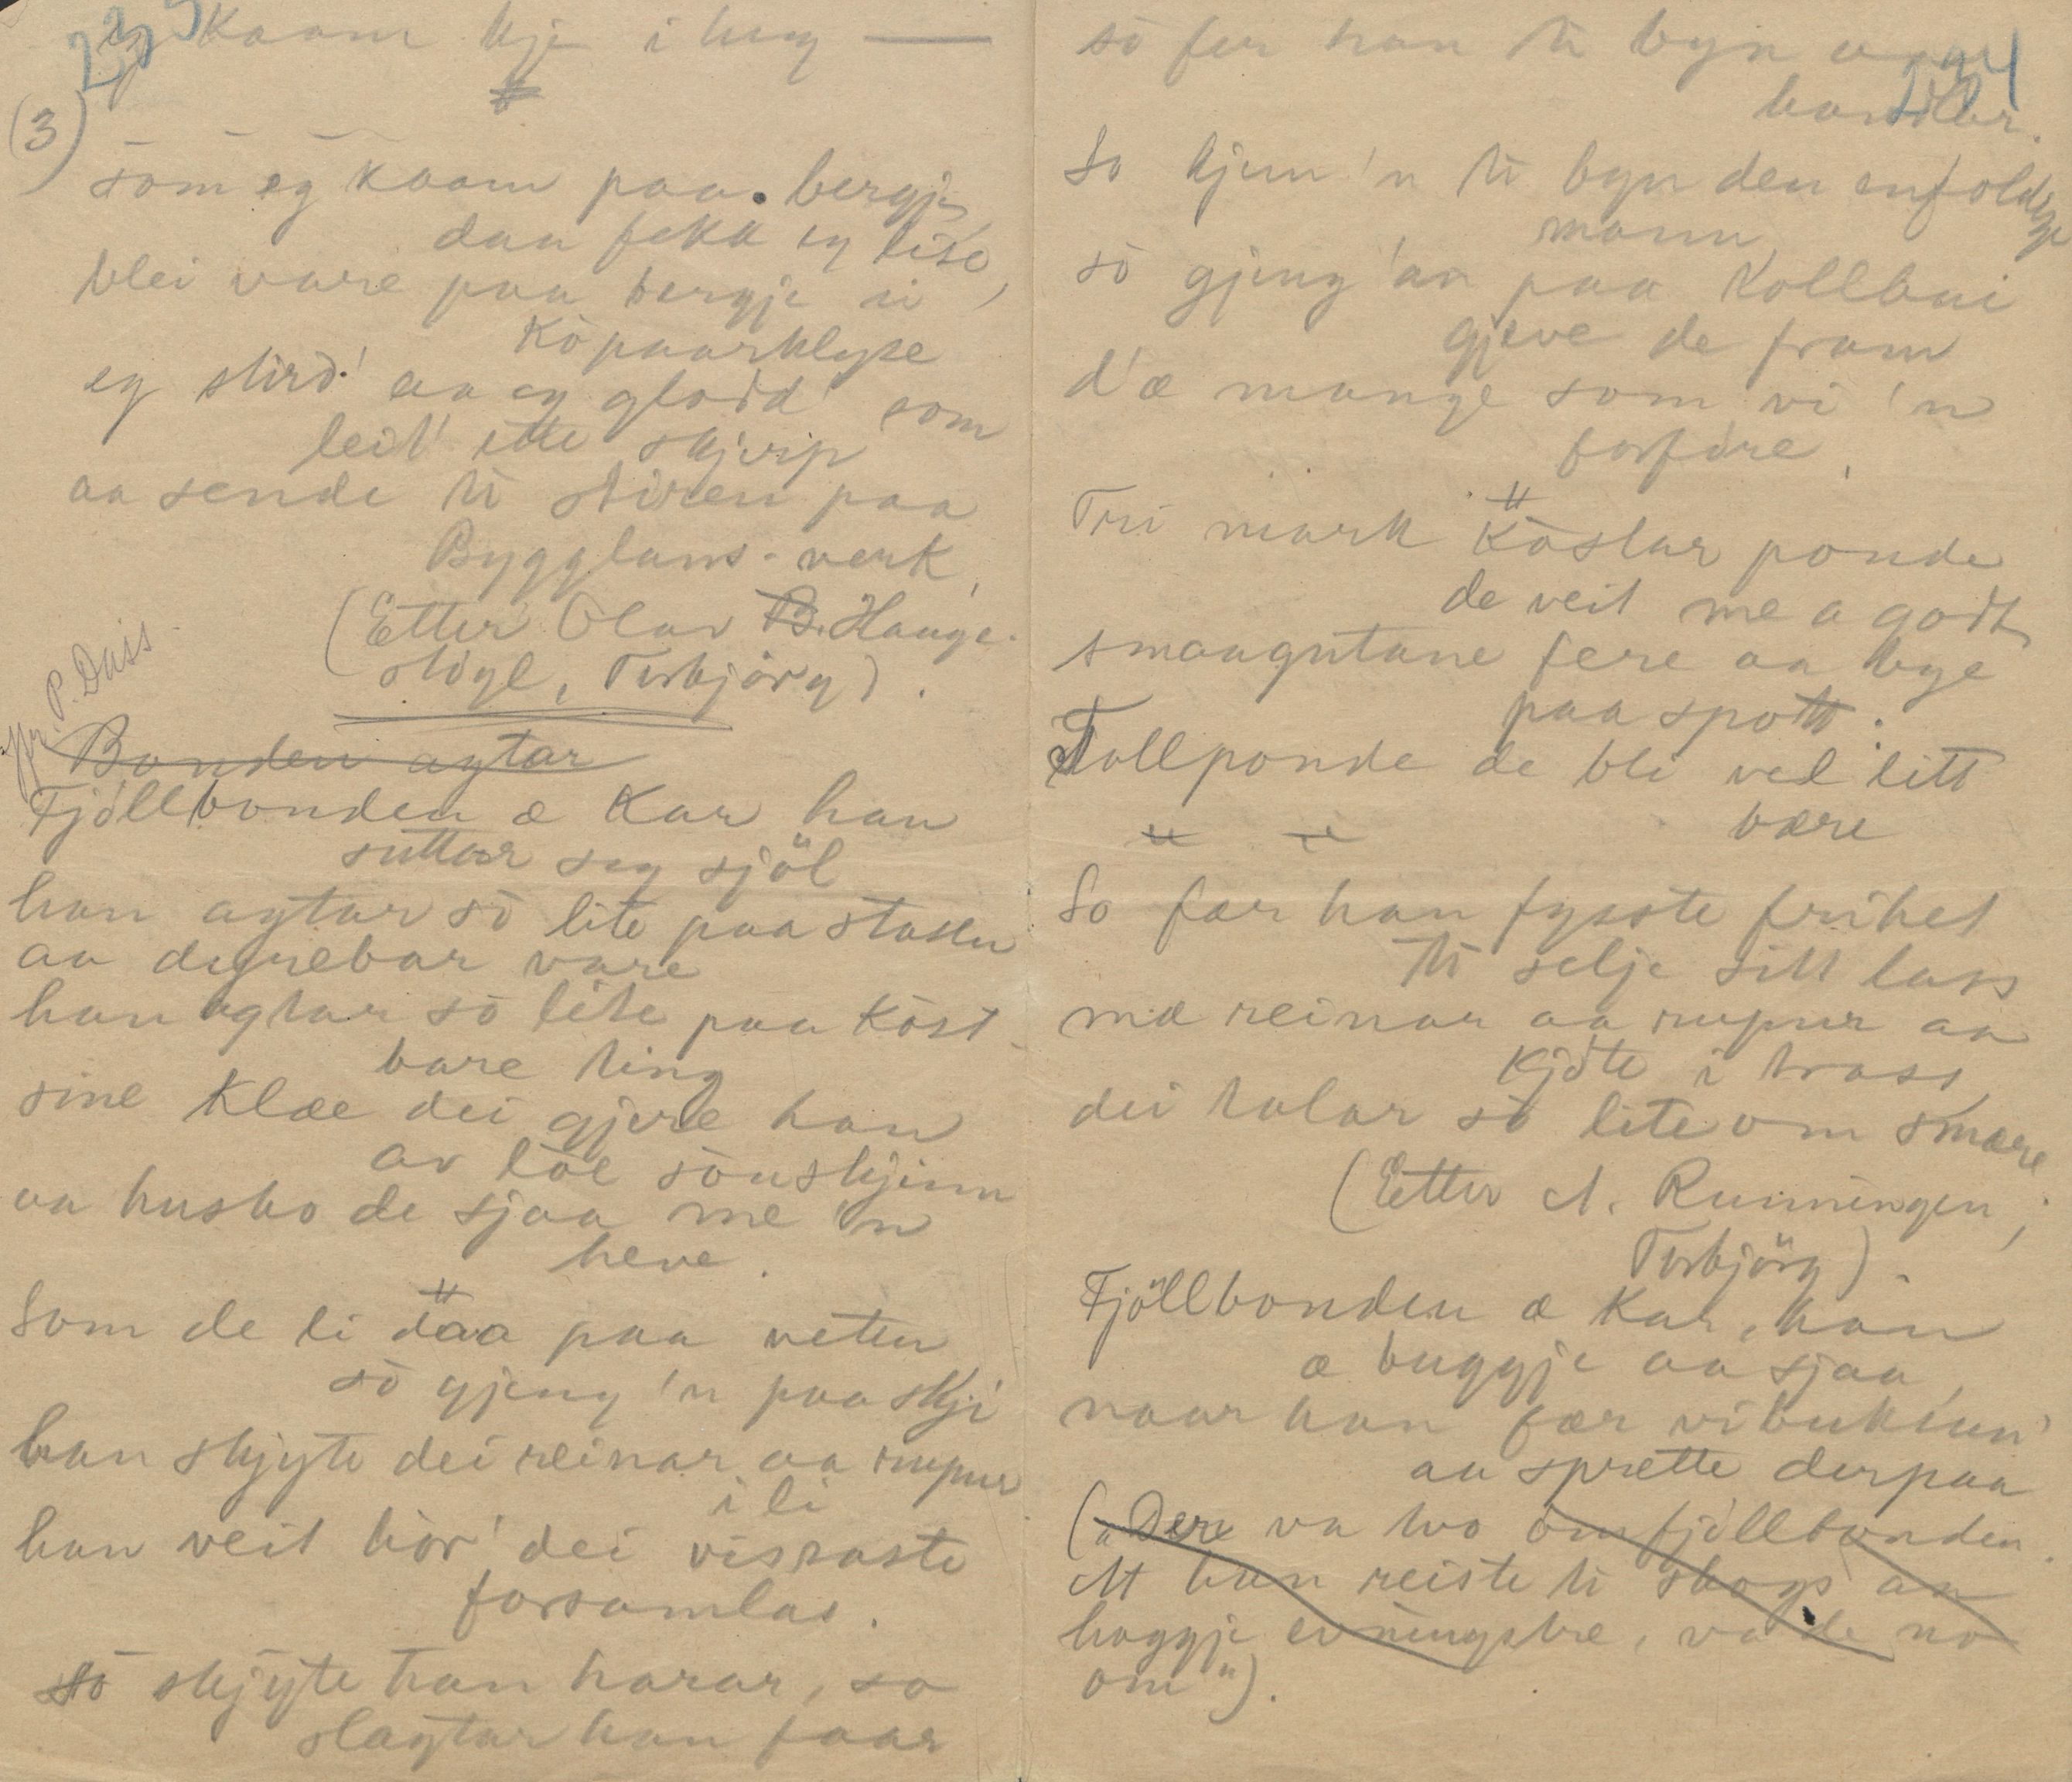 eg kaam kje i hug —
(3)
som eg kaam paa bergje
daa fekk eg lise,
blei vare paa bergje ei
kòpaarklyse
eg stird' aa eg glodd' som
leit' ette skjerp
aa sende ti stiren paa
Bygglans-verk,
(Etter Olav B. Hauge-
stògl, Torbjörg).
jfr. P. Dass
Bonden agtar
Fjöllbonden æ kar han
suttar seg sjöl
han agtar sò lite paa stasen
aa dyrebar vare
han agtar sò lite paa kòst-
bare ting
sine klæe dei gjere han
av lòe sòuskjinn
aa husbo de sjaa me 'n
heve.
Som de li däa paa veten
sò gjeng 'n paa skji
han skjyte dei reinar aa rupur
i li
han veit hòr' dei visraste
forsamlas.
sò skjyte han harar, so
slagtar han faar
sò fer han ti byn
handlar.
So kjem 'n ti byn den enfoldige
mann,
sò gjeng 'an paa Kollbui
gjeve de fram
d'æ mange som vi 'n
forføre.
Tri mark köstar ponde
de veit me a godt
smaagutane fere aa bye
paa spott.
Tollponde de bli vel litt
bære
So fær han fysste frihet
ti selje sitt lass
mæ reinar aa rupur aa
kjöte i trass
dei talar sò lite om smære
(Etter A. Runningen,
Torbjörg).
Fjöllbonden æ kar, han
æ byggje aa sjaa,
naar han fær vibuksun'
aa sprette derpaa
("Dere va tvo om fjöllbonden.
At han reiste ti skogs aa
haggje emningstre, va de no
om").